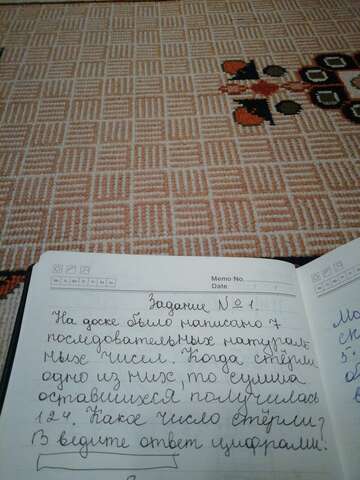 Memo No.
Date / /
Задание № 1.
На доске было написано 7
последовательных натураль
ных чисел. Когда стёрли
одно из них, то сумма
оставшихся получилась
124. Какое число стёрли?
В ведите ответ цифрами.